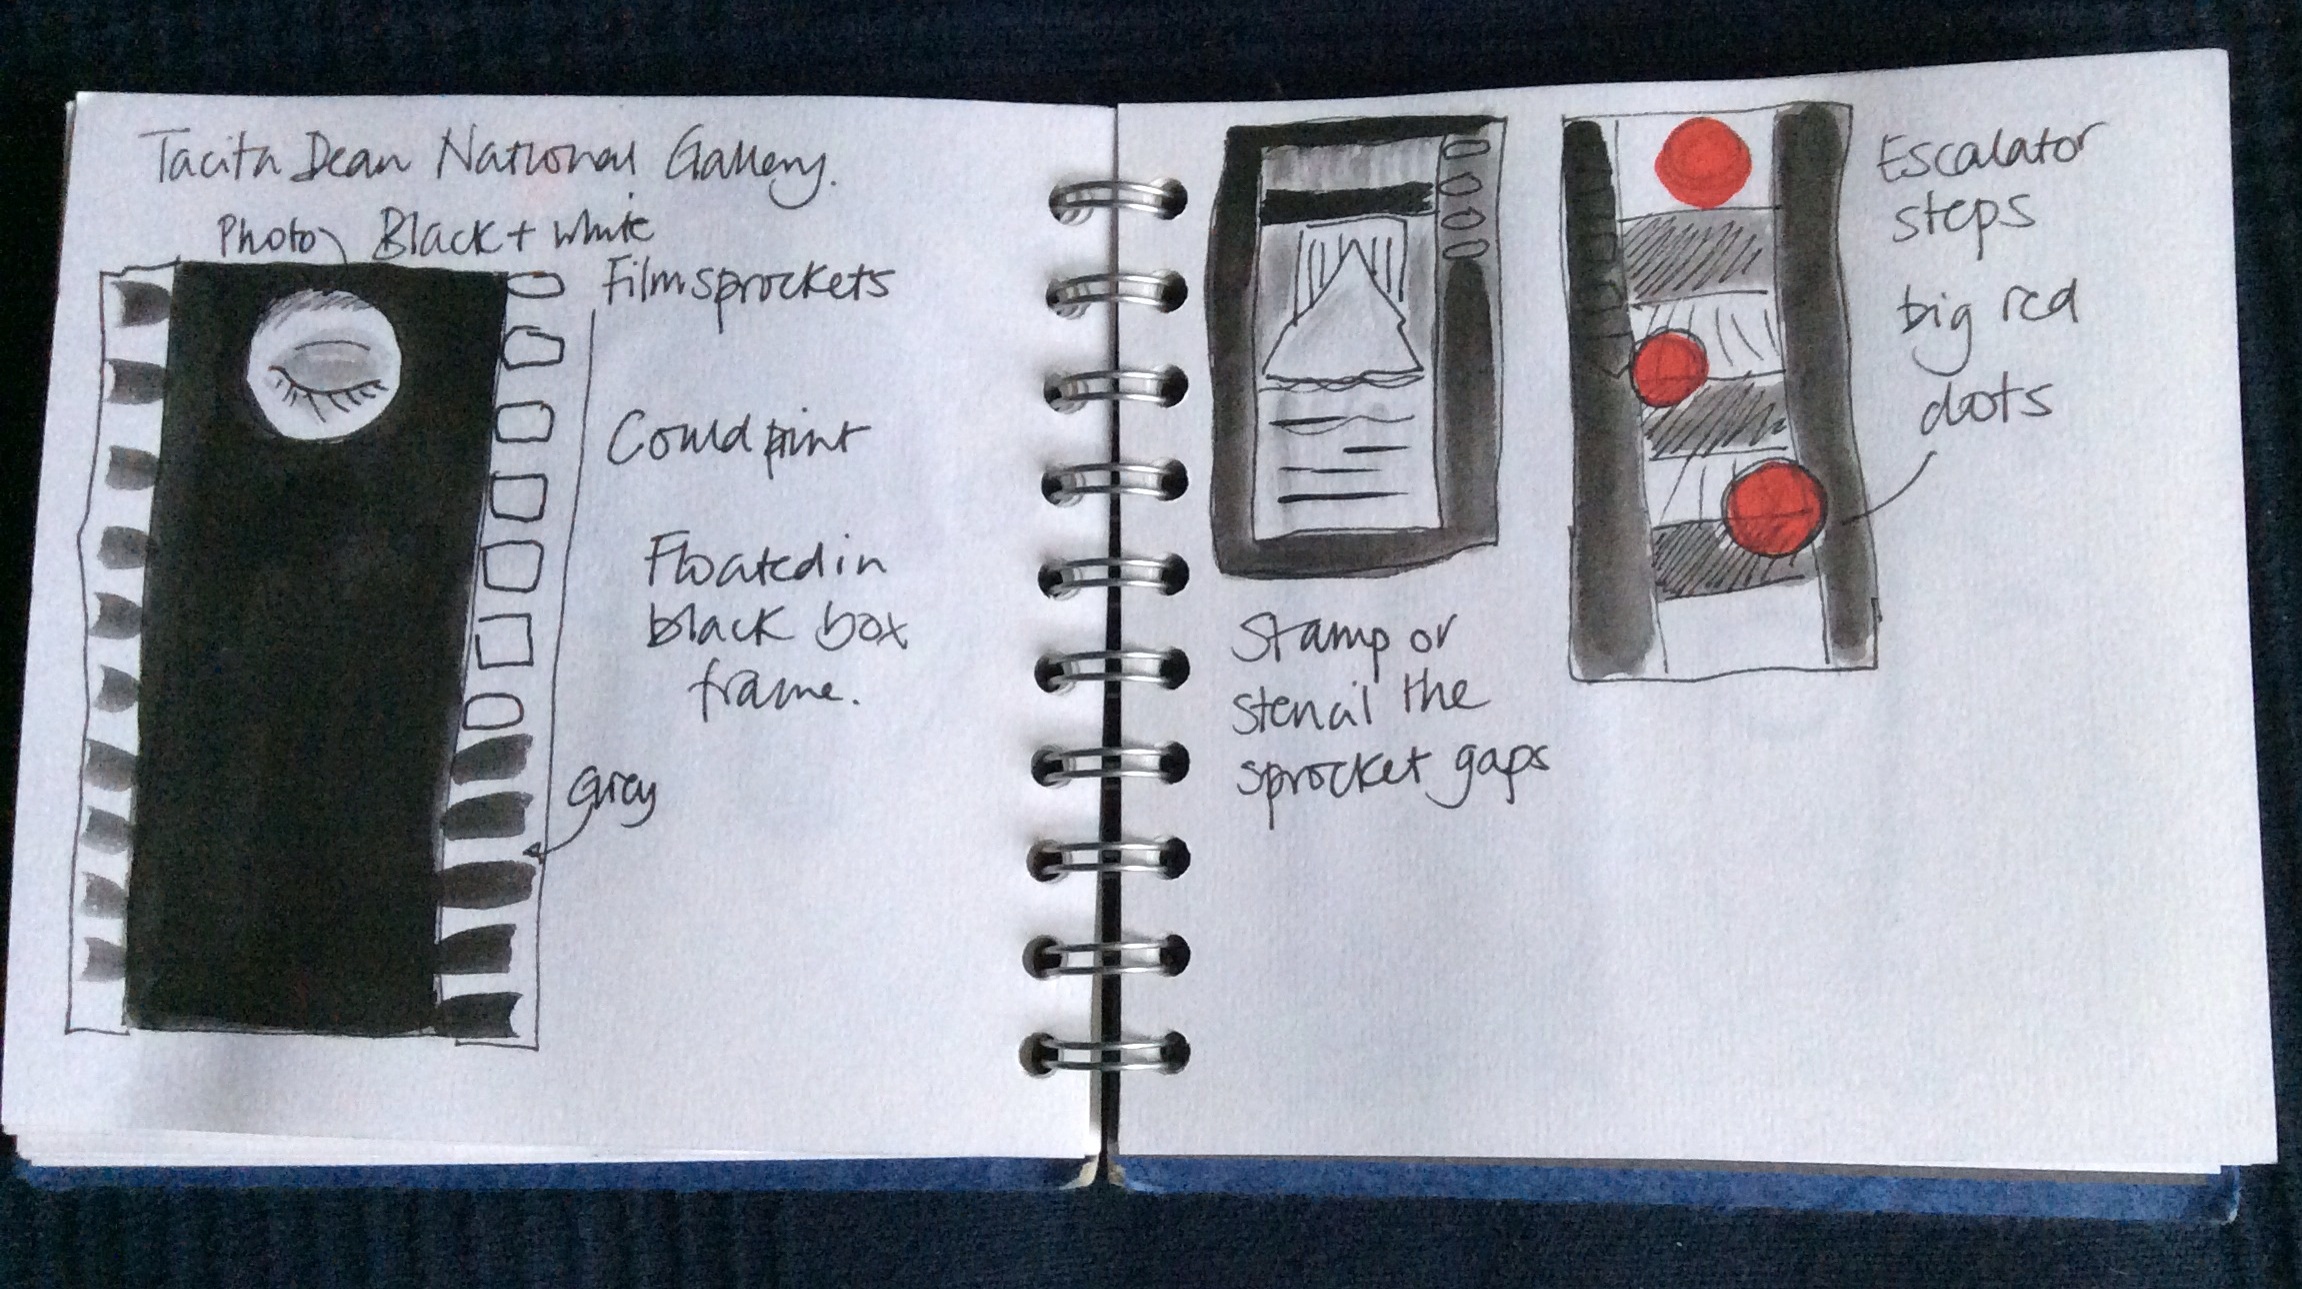 Tacita Dean National Gallery.
Photo Black + white
Filmsprockets
Could print
Floated in
black box
frame.
Grey
Stamp or
stencil the
sprocket gaps
Escalator
steps
big red
dots